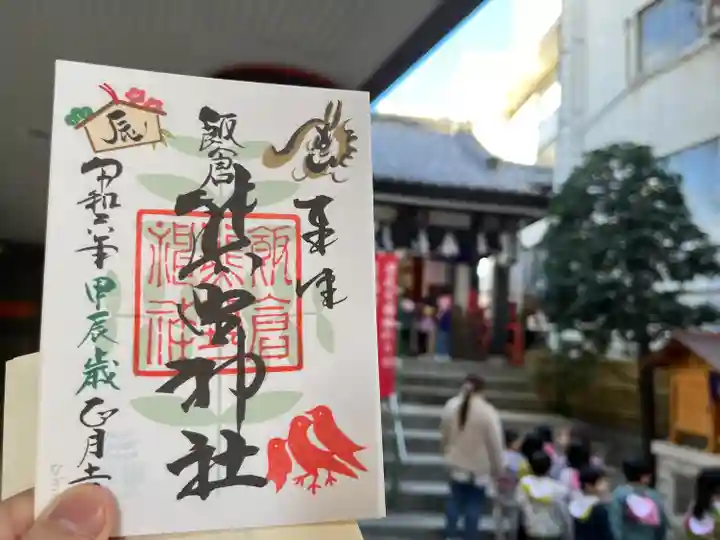 奉拝
飯倉
熊野神社
飯倉
神社
辰
令和六年 甲辰歳 正月